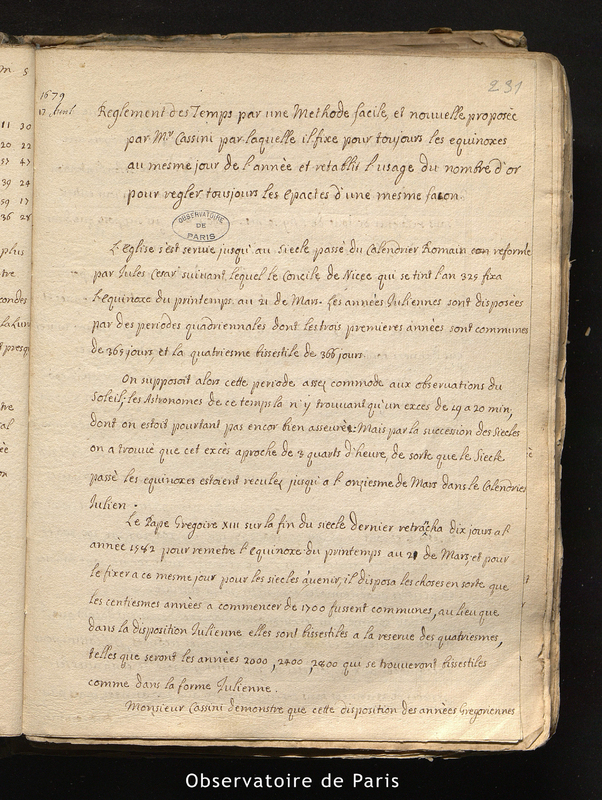 231
1679
17 Avril
Reglement des Temps par une Methode facile, et nouvelle proposée
par Mr. Cassini par laquelle il fixe pour toujours les equinoxes
au mesme jour de l'année et retablit l'usage du nombre d'or
pour regler tousjours les Epactes d'une mesme facon.
OBSERVATOIRE
DE
PARIS
L'Eglise s'est servie jusqu'au Siecle passé du Calendrier Romain con reformé
par Jules Cesar suivant lequel le Concile de Nicée qui se tint l'an 325 fixa
l'Equinoxe du printemps au 21 de Mars. Les années Juliennes sont disposées
par des periodes quadriennales dont les trois premieres années sont communes
de 365 jours et la quatriesme bissestile de 366 jours.
On supposoit alors cette periode assez commode aux observations du
Soleil; les Astronomes de ce temps la n'y trouvant qu'un excés de 19 a 20 min,
dont on estoit pourtant pas encor bien asseuré. Mais par la succession des Siecles
on a trouvé que cet excés aproche de 3 quarts d'heure, de sorte que le Siecle
passé les equinoxes estoient reculez jusqu'a l'onziesme de Mars dans le Calendrier
Julien.
Le Pape Gregoire XIII sur la fin du siecle dernier retrancha dix jours a l'
année 1582 pour remetre l'Equinoxe du printemps au 21 de Mars, et pour
le fixer a ce mesme jour pour les siecles a venir, il disposa les choses en sorte que
les centiesmes années a commencer de 1700 fussent communes, au lieu que
dans la disposition Julienne elles sont bissestiles a la reserve des quatriesmes,
telles que seront les années 2000, 2400, 2800 qui se trouveront bissestiles
comme dans la forme Julienne.
Monsieur Cassini demonstre que cette disposition des années Gregoriennes
m s
11 30
20 22
39 24
59 17
36 28
plus
Observatoire de Paris